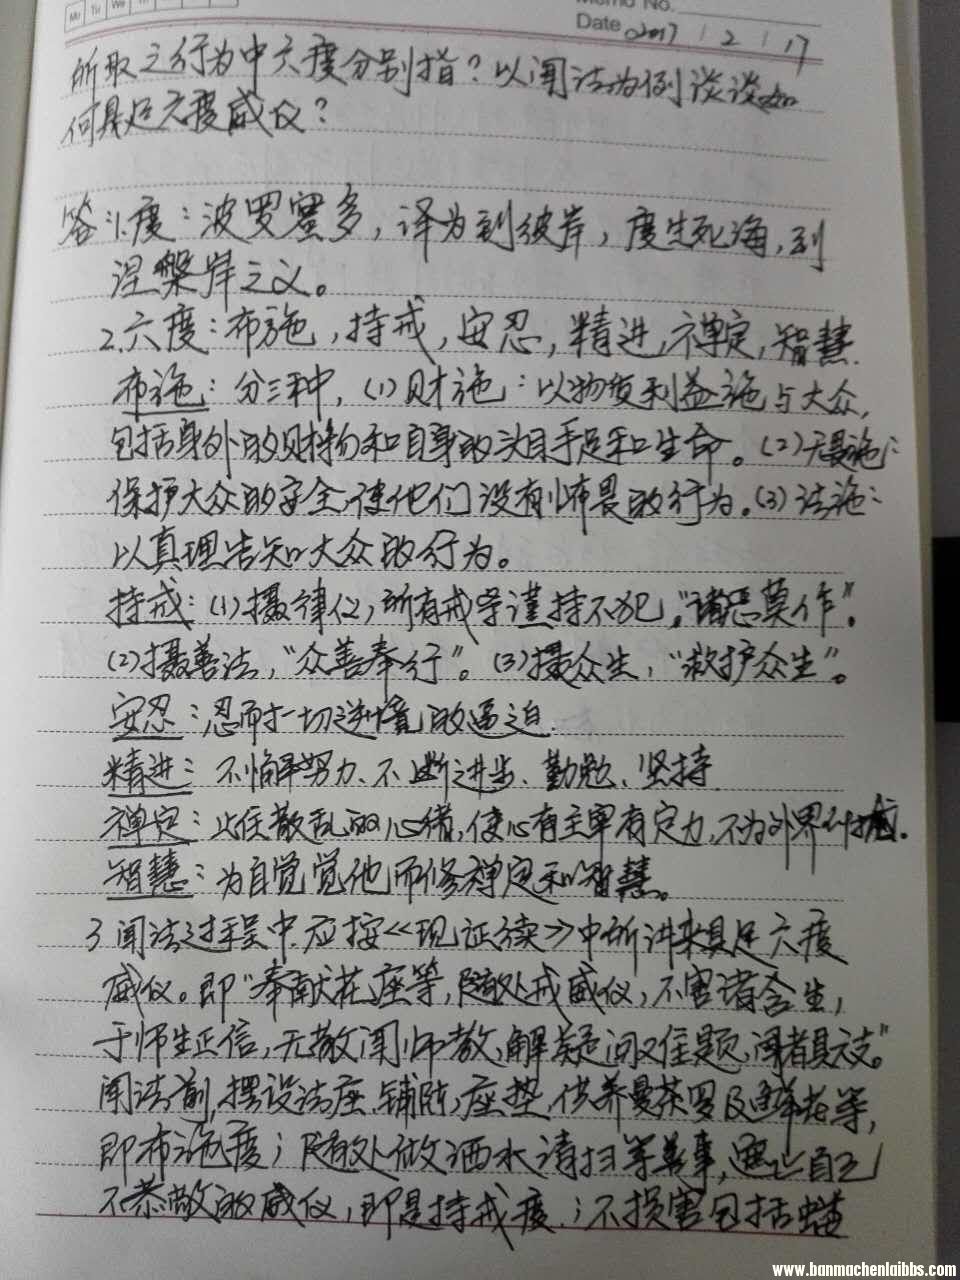 Mo Tu We Th
Memo No.
Date 2017 / 2 / 17
所取之行为中六度分别指？以闻法为例谈谈如
何具足六度威仪？
答:1.度：波罗蜜多，译为到彼岸，度生死海，到
涅槃岸之义。
2.六度：布施，持戒，安忍，精进，禅定，智慧.
布施：分三种，(1)财施：以物质利益施与大众，
包括身外的财物和自身的头目手足和生命。(2)无畏施：
保护大众的安全使他们没有怖畏的行为。(3)法施：
以真理告知大众的行为。
持戒：(1)摄律仪，所有戒学谨持不犯，“诸恶莫作”。
(2)摄善法，“众善奉行”。(3)摄众生，“救护众生”。
安忍：忍耐一切逆境的逼迫.
精进：不懈努力、不断进步、勤勉、坚持
禅定：止住散乱的心绪，使心有主宰有定力，不为外界
智慧：为自觉觉他而修禅定和智慧。
3 闻法过程中应按《现证续》中所讲来具足六度
威仪。即“奉献花座等，随处戒威仪，不害诸含生，
于师生正信，无散闻师教，解疑问难题，闻者具六支。”
闻法前，摆设法座、铺陈、座垫，供养曼茶罗及鲜花等，
即布施度；随处做洒水清扫等善事，遮止自己
不恭敬的威仪，即是持戒度；不损害包括蝼
www.banmachenlaibbs.com